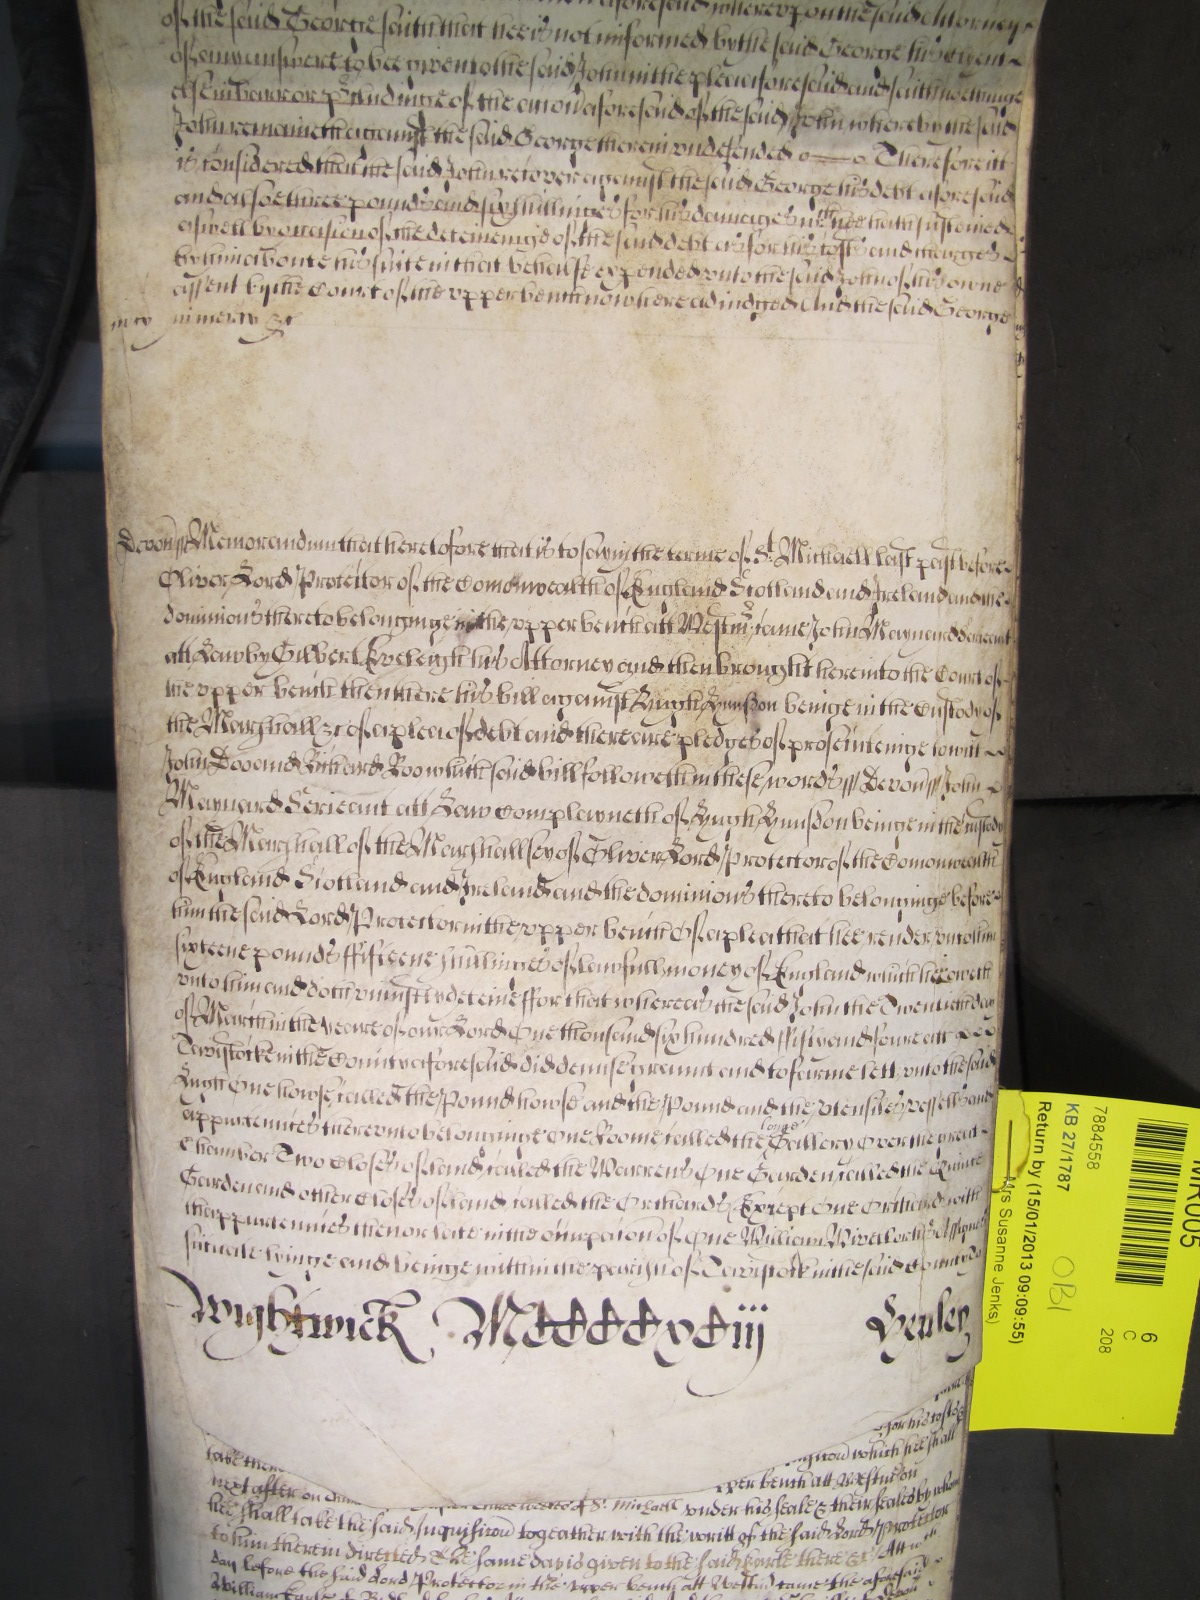 of the said George saith that hee is not informed by the said George his Client
of any answere to bee given to the said John in the plea aforesaid and saith nothinge
else in barr or p'cludinge of the accion aforesaid of the said John whereby the said
John remaineth against the said George therein undefended Therefore itt
is considered that the said John recover against the said George his debt aforesaid
and alsoe three pounds and six shillings for his damages wch hee hath susteined
aswell by occasion of the deteineinge of the said debt as for his costs and charges
by him about his suite in that behalfe expended unto the said John of his owne
assent by the Court of the upper bench now here adiudged And the said George
in mercy &c
Devon ss Memorandum that heretofore that is to say in the terme of St Michaell last past before
Oliver Lord Protector of the Comonwealth of England Scotland and Ireland and the
dominions thereto belonginge in the upper bench att Westmr came John Maynard Serieant
att Law by Gilbert Eveleigh his Attorney and then brought here into the Court of
the upper bench then there his bill against Hugh beinge in the Custody of
the Marshall &c of a plea of debt and there are pledges of prosecuteinge to witt
John Doo and Richard Roo which said bill followeth in these words ss Devon ss John
Maynard Serieant att Law Complayneth of Hugh beinge in the custody
of the Marshall of the Marshallsey of Oliver Lord Protector of the Comonwealth
of England Scotland and Ireland and the dominions thereto belonginge before
him the said Lord Protector in the upper bench Of a plea that hee render unto him
sixteene pounds fifteene shillings of lawfull money of England which hee oweth
unto him and doth uniustly deteine ffor that whereas the said John the Twentieth day
of March in the yeare of our Lord One thousand six hundred fifty and foure att
Tavistocke in the County aforesaid did demise graunt and to farme lett unto the said
Hugh One howse called the Pound howse and the Pound and the utensiles vessells and
appurtennces thereunto belonginge One Roome called the longe Gallery Over the great
Chamber Two Closes of land called the Warrens One Garden called the
Garden and other Closes of land called the Orchards Except One Orchard with
thappurtennces then or late in the occupacon of One William or his Assignes
scituate lyinge and beinge within the parish of Tavistock in the said County
Wightwick Mccccxciii Henley
for his costs &
take then Inquisicon which hee shall
next after three weekes of St Michaell upper bench att Westm on
hee shall take the said Inquisicon togeather with the writt of the said Lord Protector
to him therein directed & the same day is given to the said there &c Att
day before the said Lord Protector in the upper bench att Westm came the aforesaid
William
MR005
7884558
KB 27/1787
Return by (15/01/2013 09:09:55)
Mrs Susanne Jenks)
OB1
6
C
208